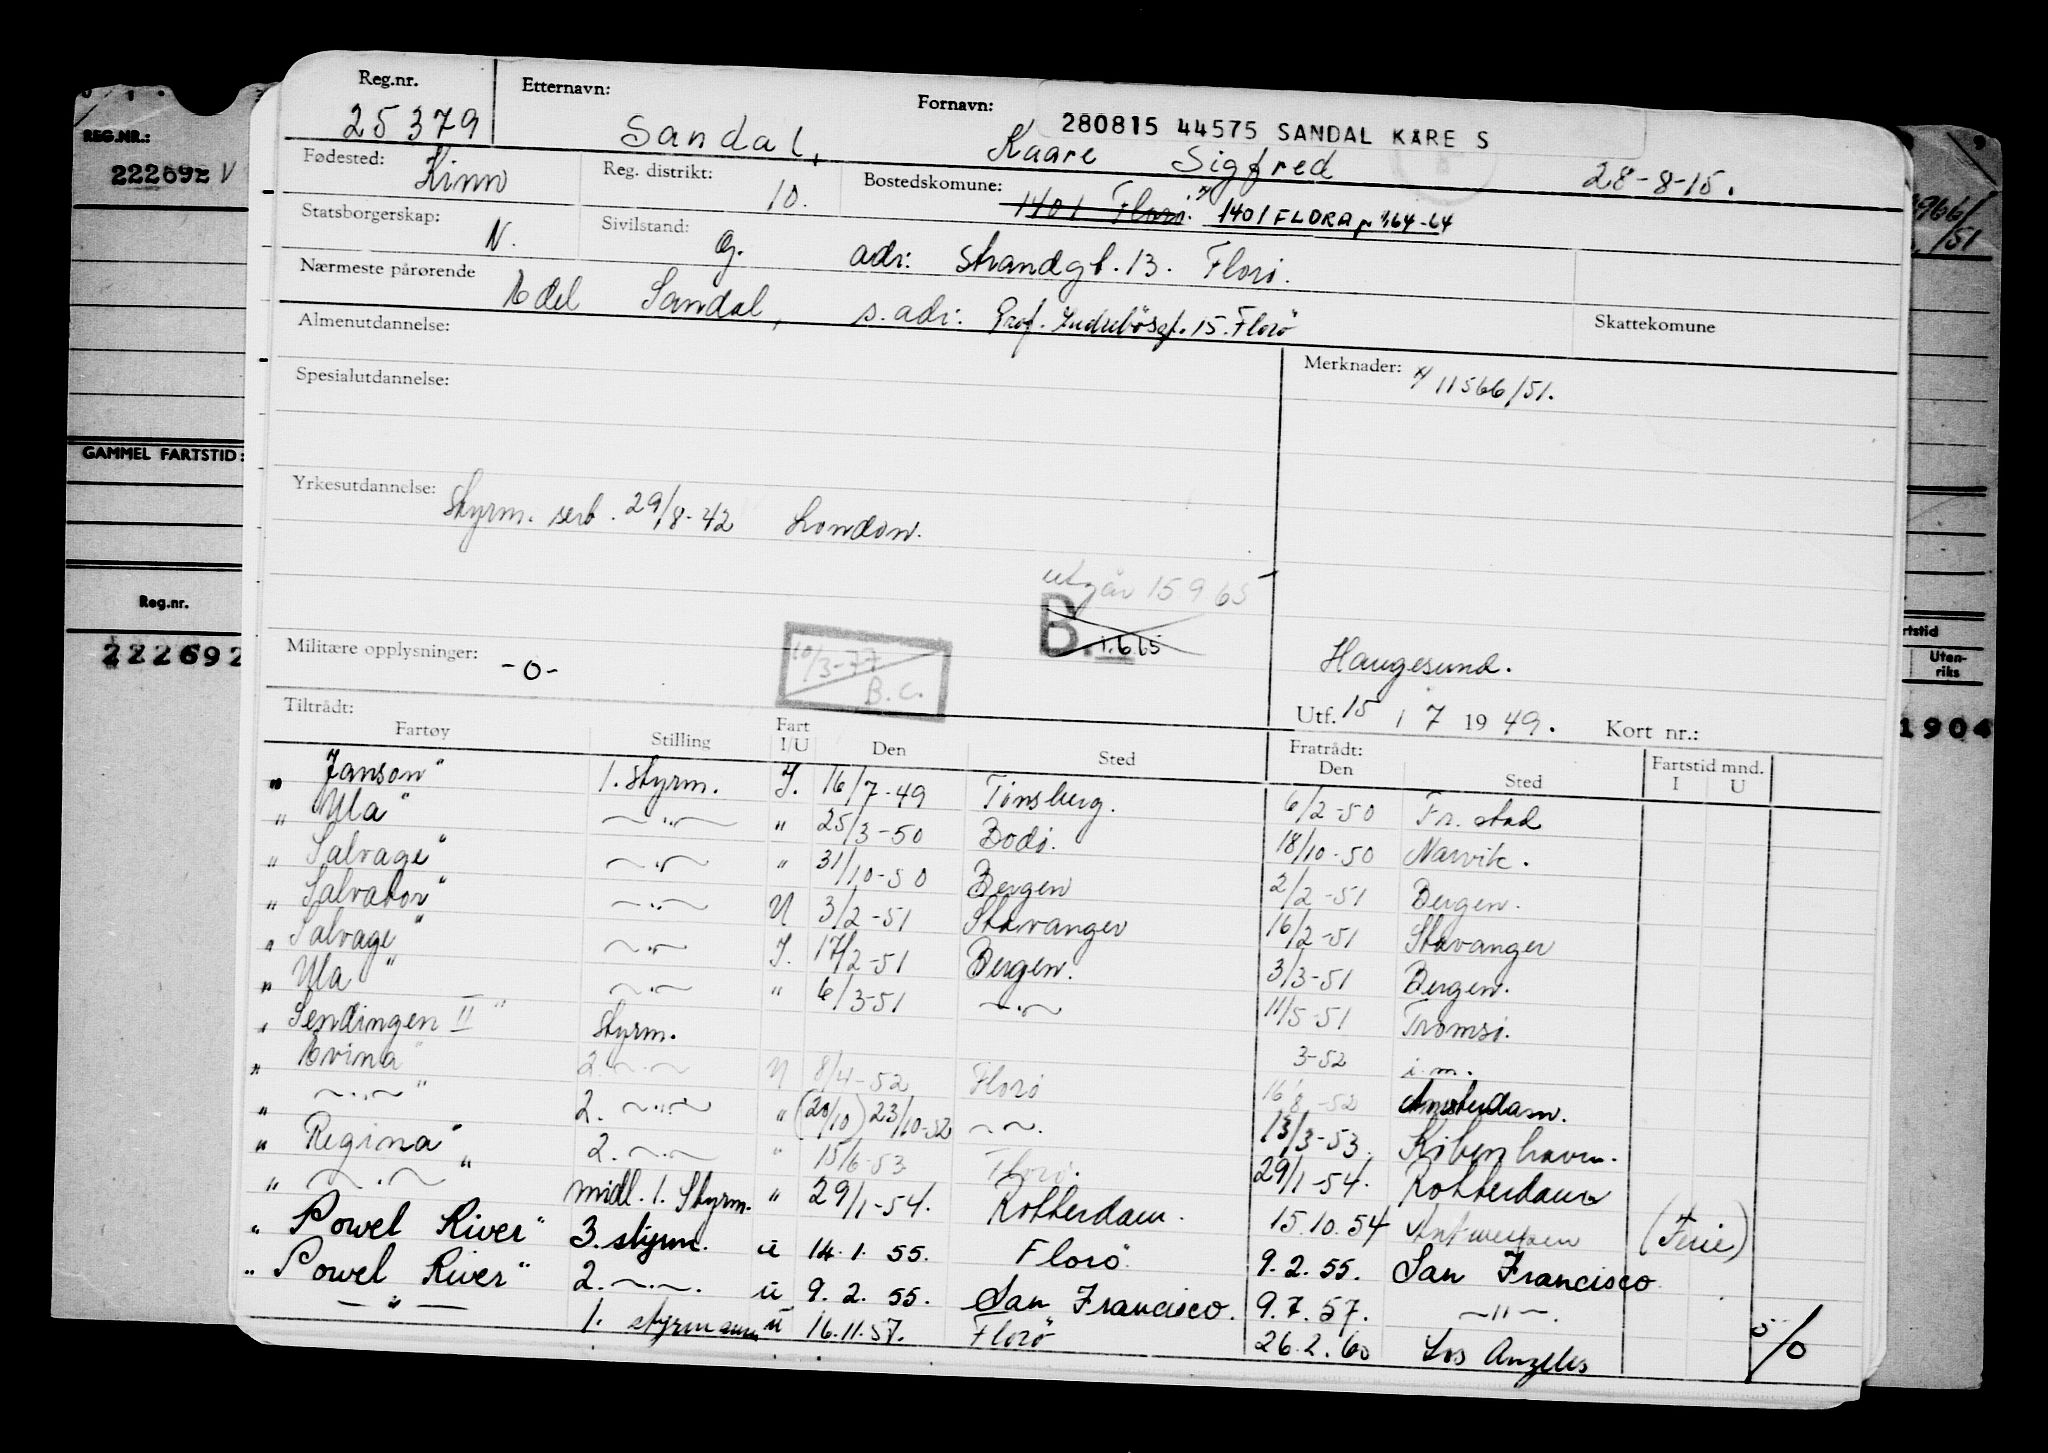 Reg.nr. Etternavn: Fornavn: 280815 44575 SANDAL KÅRE S
25379 Sandal, Kaare Sigfred 28-8-15.
Fødested: Kinn Reg. distrikt: 10. Bostedskomune: 1401 Florø. 1401 FLORA
Statsborgerskap: N. Sivilstand: G. adr: Strandgt. 13. Florø.
Nærmeste pårørende Edel Sandal, s. adr: 15. Florö
Almenutdannelse: Skattekomune
Spesialutdannelse: Merknader: 11566/51.
Yrkesutdannelse: Styrm. sert. 29/8-42 London.
utgår 15 9 65
B. 1.6.65
Militære opplysninger: -0- 10/3-77 B.C. Haugesund.
Utf. 15 / 7 1949. Kort nr.:
Tiltrådt: Fratrådt: Fartstid mnd.
Fartøy Stilling Fart I/U Den Sted Den Sted I U
" Janson" 1. styrm. I. 16/7-49 Tønsberg. 6/2-50 Fr. stad
" Ula" " " 25/3-50 Bodø. 18/10-50 Narvik.
" Salvage" " " 31/10-50 Bergen 2/2-51 Bergen.
" Salvator" " U 3/2-51 Stavanger 16/2-51 Stavanger
" Salvage" " I. 17/2-51 Bergen. 3/3-51 Bergen.
" Ula" " " 6/3-51 " 11/5-51 Tromsø.
" Sendingen II" Styrm. 3-52 i.m.
" Evina" 2. " U 8/4-52 Florø 16/8-52 Amsterdam.
" " 2. " " (20/10) 23/10-52 " 13/3-53. København.
" Regina" 2. " " 15/6-53 Florø. 29/1-54. Rotterdam
" " midl. 1. Styrm. " 29/1-54. Rotterdam. 15.10.54 Antwerpen (Ferie)
" Powel River" 3. styrm. u 14.1.55. Florö 9.2.55. San Francisco
" Powel River" 2. " u 9.2.55. San Francisco. 9.7.57. "
" 1. styrmann u 16.11.57. Florö 26.2.60 Los Angeles 5/0
REG.NR.:
222692 V
GAMMEL FARTSTID:
Reg.nr.
222692
/51
rtstid
Uten-
riks
1904